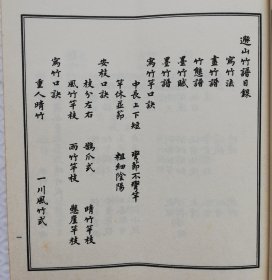 遯山竹譜目錄
寫竹法
畫竹譜
竹態譜
墨竹賦
墨竹譜
寫竹竿口訣
中長上下短　彎節不彎竿
竿休並節　粗細陰陽
安枝口訣
枝分左右　鵲爪式　晴竹竿枝
風竹竿枝　雨竹竿枝　懸崖竿枝
寫竹口訣
重人晴竹　一川風竹式